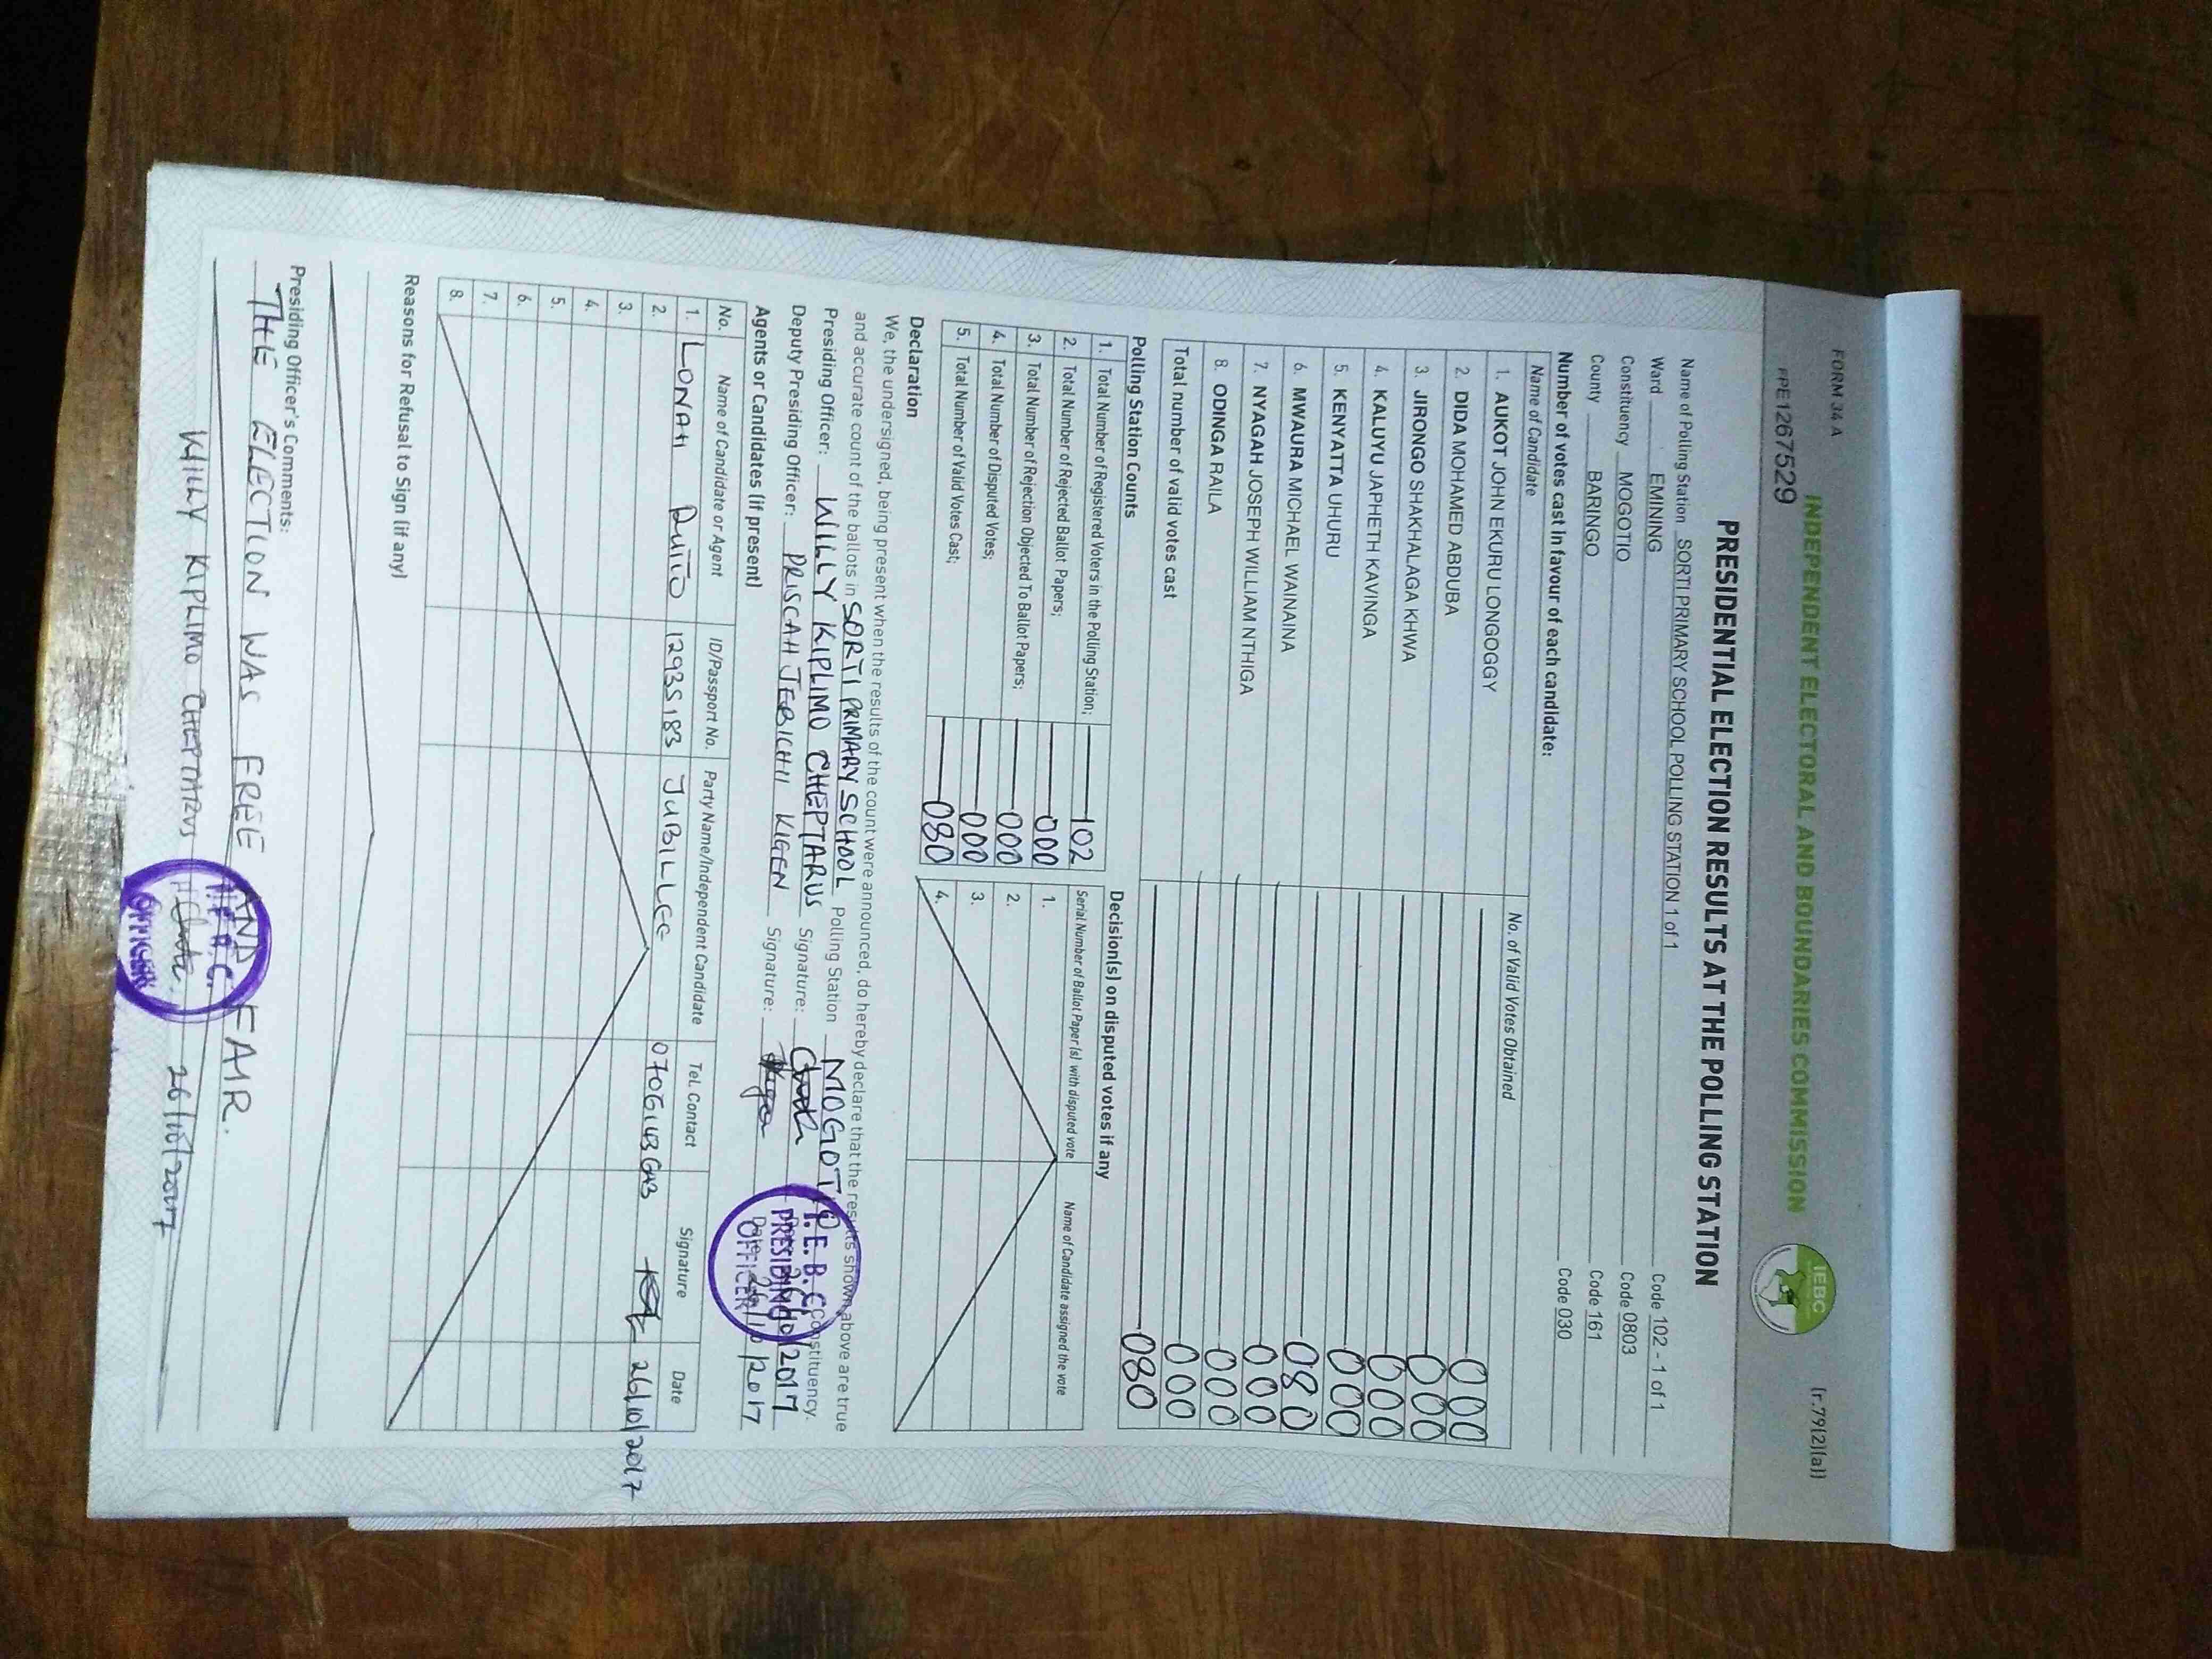 FORM 34 A
(r.79(2)(a))
FPE1267529
INDEPENDENT ELECTORAL AND BOUNDARIES COMMISSION
IEBC
PRESIDENTIAL ELECTION RESULTS AT THE POLLING STATION
Name of Polling Station SORTI PRIMARY SCHOOL POLLING STATION 1 of 1 Code 102 - 1 of 1
Ward EMINING Code 0803
Constituency MOGOTIO Code 161
County BARINGO Code 030
Number of votes cast in favour of each candidate:
Name of Candidate No. of Valid Votes Obtained
1. AUKOT JOHN EKURU LONGOGGY 000
2. DIDA MOHAMED ABDUBA 000
3. JIRONGO SHAKHALAGA KHWA 000
4. KALUYU JAPHETH KAVINGA 000
5. KENYATTA UHURU 080
6. MWAURA MICHAEL WAINAINA 000
7. NYAGAH JOSEPH WILLIAM NTHIGA 000
8. ODINGA RAILA 000
Total number of valid votes cast 080
Polling Station Counts
1. Total Number of Registered Voters in the Polling Station; 102
2. Total Number of Rejected Ballot Papers; 000
3. Total Number of Rejection Objected To Ballot Papers; 000
4. Total Number of Disputed Votes; 000
5. Total Number of Valid Votes Cast; 080
Decision(s) on disputed votes if any
Serial Number of Ballot Paper(s) with disputed vote Name of Candidate assigned the vote
1.
2.
3.
4.
Declaration
We, the undersigned, being present when the results of the count were announced, do hereby declare that the results shown above are true
and accurate count of the ballots in SORTI PRIMARY SCHOOL Polling Station MOGOTIO Constituency.
Presiding Officer: WILLY KIPLIMO CHEPTARUS Signature: 26/10/2017
Deputy Presiding Officer: PRISCAH JEBICHII KIGEN Signature: Date: 26/10/2017
I. E. B. C.
PRESIDING
OFFICER
Agents or Candidates (if present)
No. Name of Candidate or Agent ID/Passport No. Party Name/Independent Candidate Tel. Contact Signature Date
1. LONAH RUTO 12935183 JUBILLEE 0706143643 26/10/2017
2.
3.
4.
5.
6.
7.
8.
Reasons for Refusal to Sign (if any)
Presiding Officer's Comments:
THE ELECTION WAS FREE AND FAIR.
WILLY KIPLIMO CHEPTARUS 26/10/2017
I. E. B. C.
OFFICER